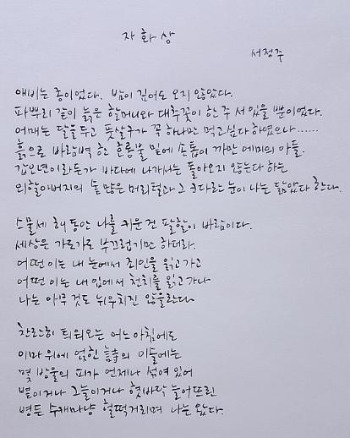 자화상
서정주
애비는 종이었다. 밤이 깊어도 오지 않았다.
파뿌리 같이 늙은 할머니와 대추꽃이 한 주 서 있을 뿐이었다.
어매는 달을 두고 풋살구가 꼭 하나만 먹고 싶다 하였으나......
흙으로 바람벽 한 호롱불 밑에 손톱이 까만 에미의 아들.
갑오년이라든가 바다에 나가서는 돌아오지 않는다 하는
외할아버지의 숱 많은 머리털과 그 크다란 눈이 나는 닮았다 한다.
스물세 해 동안 나를 키운 건 팔할이 바람이다.
세상은 가도가도 부끄럽기만 하더라.
어떤 이는 내 눈에서 죄인을 읽고 가고
어떤 이는 내 입에서 천치를 읽고 가나
나는 아무 것도 뉘우치진 않을란다.
찬란히 틔워오는 어느 아침에도
이마 위에 얹힌 詩의 이슬에는
몇 방울의 피가 언제나 섞여 있어
볕이거나 그늘이거나 혓바닥 늘어뜨린
병든 수캐마냥 헐떡거리며 나는 왔다.